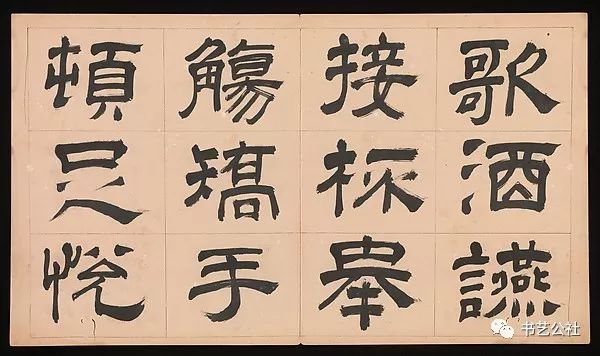 歌酒讌
接杯舉
觴矯手
頓足悅
书艺公社